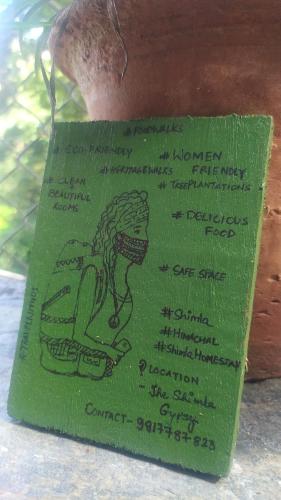 # FOODWALKS
# ECO-FRIENDLY
# WOMEN FRIENDLY
# HERITAGEWALKS
# CLEAN BEAUTIFUL ROOMS
# TREEPLANTATIONS
# DELICIOUS FOOD
# SAFE SPACE
#Shimla
#HIMACHAL
#ShimlaHOMESTAY
LOCATION
- The Shimla Gypsy
CONTACT - 9817787823